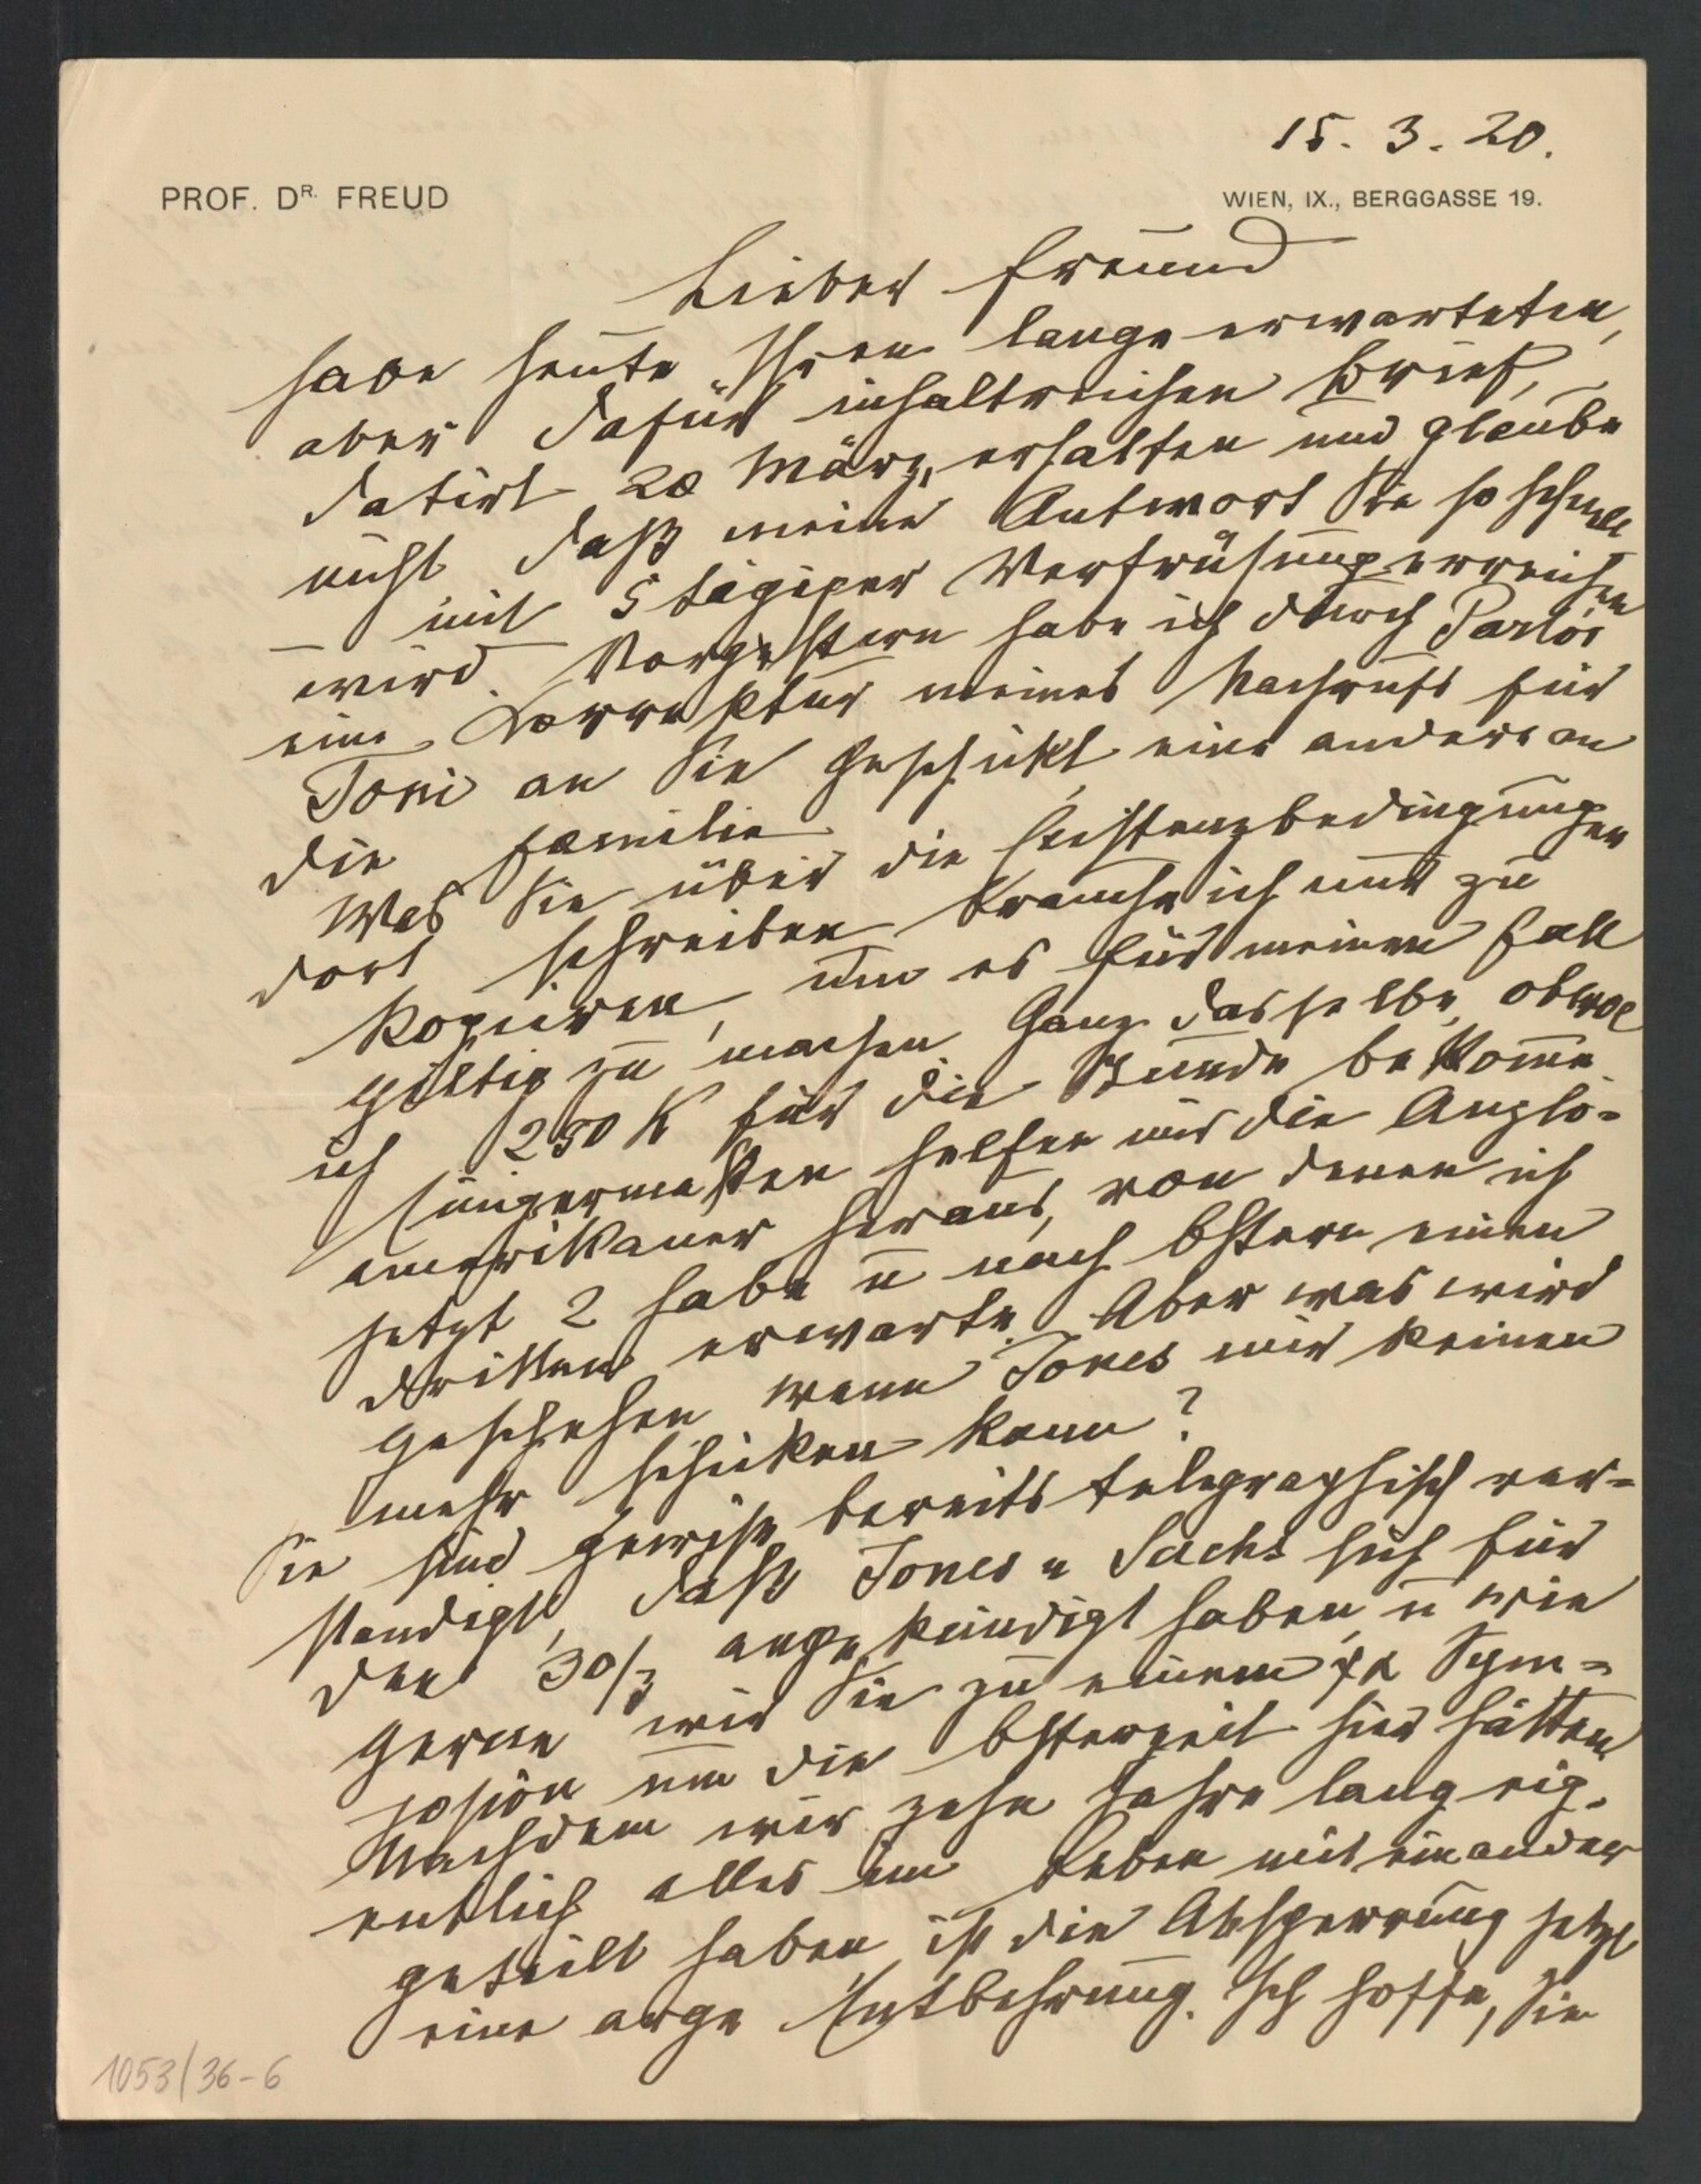 15. 3. 20.
PROF. DR. FREUD
WIEN, IX., BERGGASSE 19.
Lieber Freund
habe heute Ihren lange erwarteten,
aber dafür inhaltreichen Brief,
datirt 20 März, erhalten und glaube
nicht daß meine Antwort Sie so schnell
– mit 5 tägiger Verfrühung erreichen
wird. Vorgestern habe ich durch
eine Korrektur meines Nachrufs für
Toni an Sie geschickt, eine andere an
die Familie.
Was Sie über die Existenzbedingungen
dort schreiben brauche ich nur zu
kopieren, um es für meinen Fall
giltig zu machen. Ganz dasselbe, obwol
ich 250 K für die Stunde bekomme.
Einigermaßen helfen mir die Anglo-
amerikaner heraus, von denen ich
jetzt 2 habe u nach Ostern einen
dritten erwarte. Aber was wird
geschehen wenn Jones mir keinen
mehr schicken kann?
Sie sind gewiß bereits telegraphisch ver-
standigt, daß Jones u Sachs sich für
den 30/3 angekündigt haben, u wie
gerne wir Sie zu einem Sym-
posion um die Osterzeit hier hätten.
Nachdem wir zehn Jahre lang eig-
entlich alles im Leben mit einander
geteilt haben ist die Absperrung jetzt
eine arge Entbehrung. Ich hoffe, Sie
1053/36-6